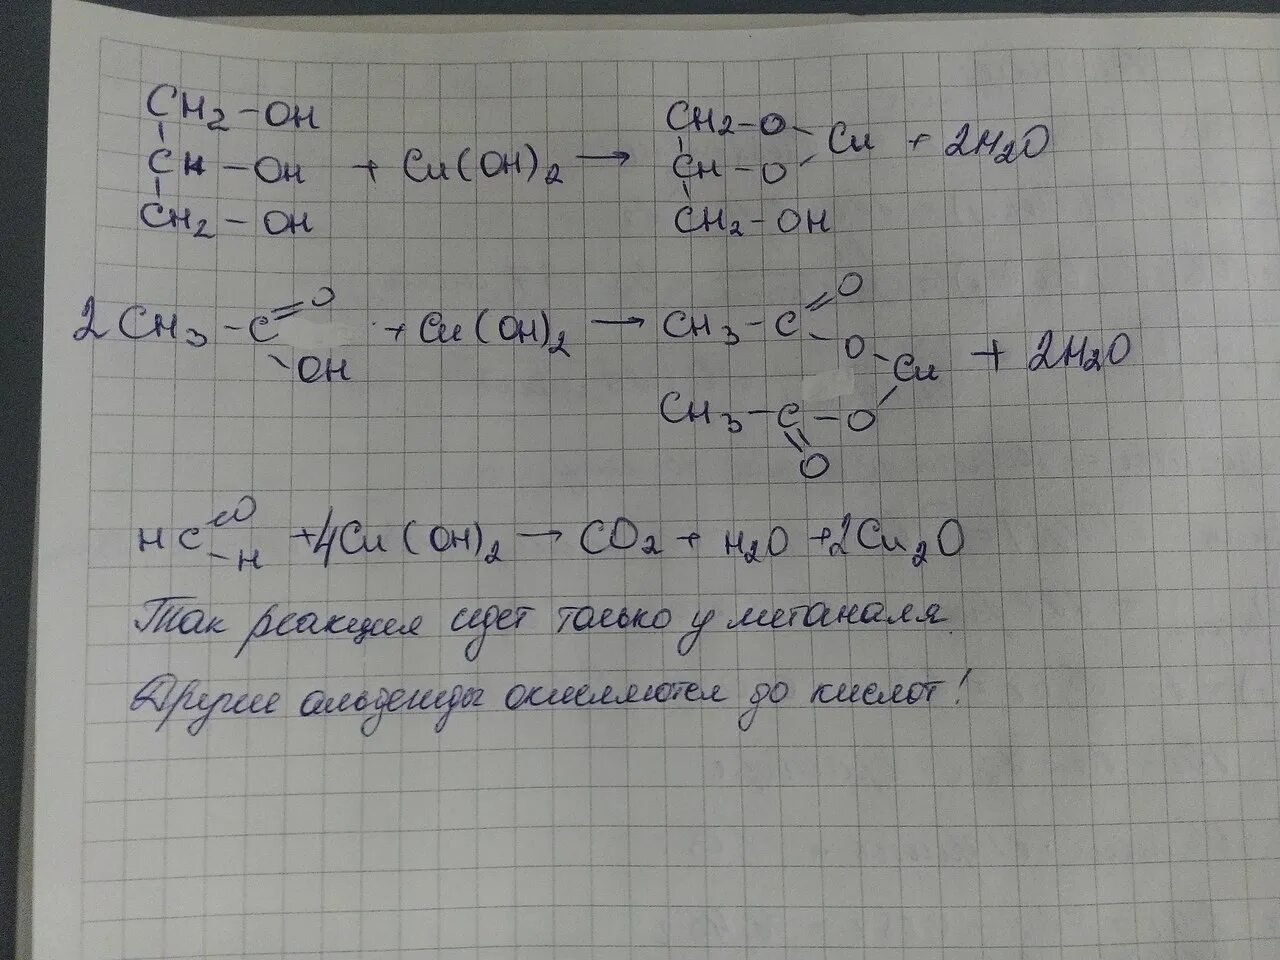 CH2-OH
CH-OH + Cu(OH)2 → CH2-O
CH2-OH
CH-O Cu + 2H2O
CH2-OH
2CH3-C=O OH + Cu(OH)2 → CH3-C=O O-Cu + 2H2O
CH3-C-O
O
HC=O -H +4Cu(OH)2 → CO2 + H2O +2Cu2O
Так реакция идет только у метаналя
Другие альдегиды окисляются до кислот!